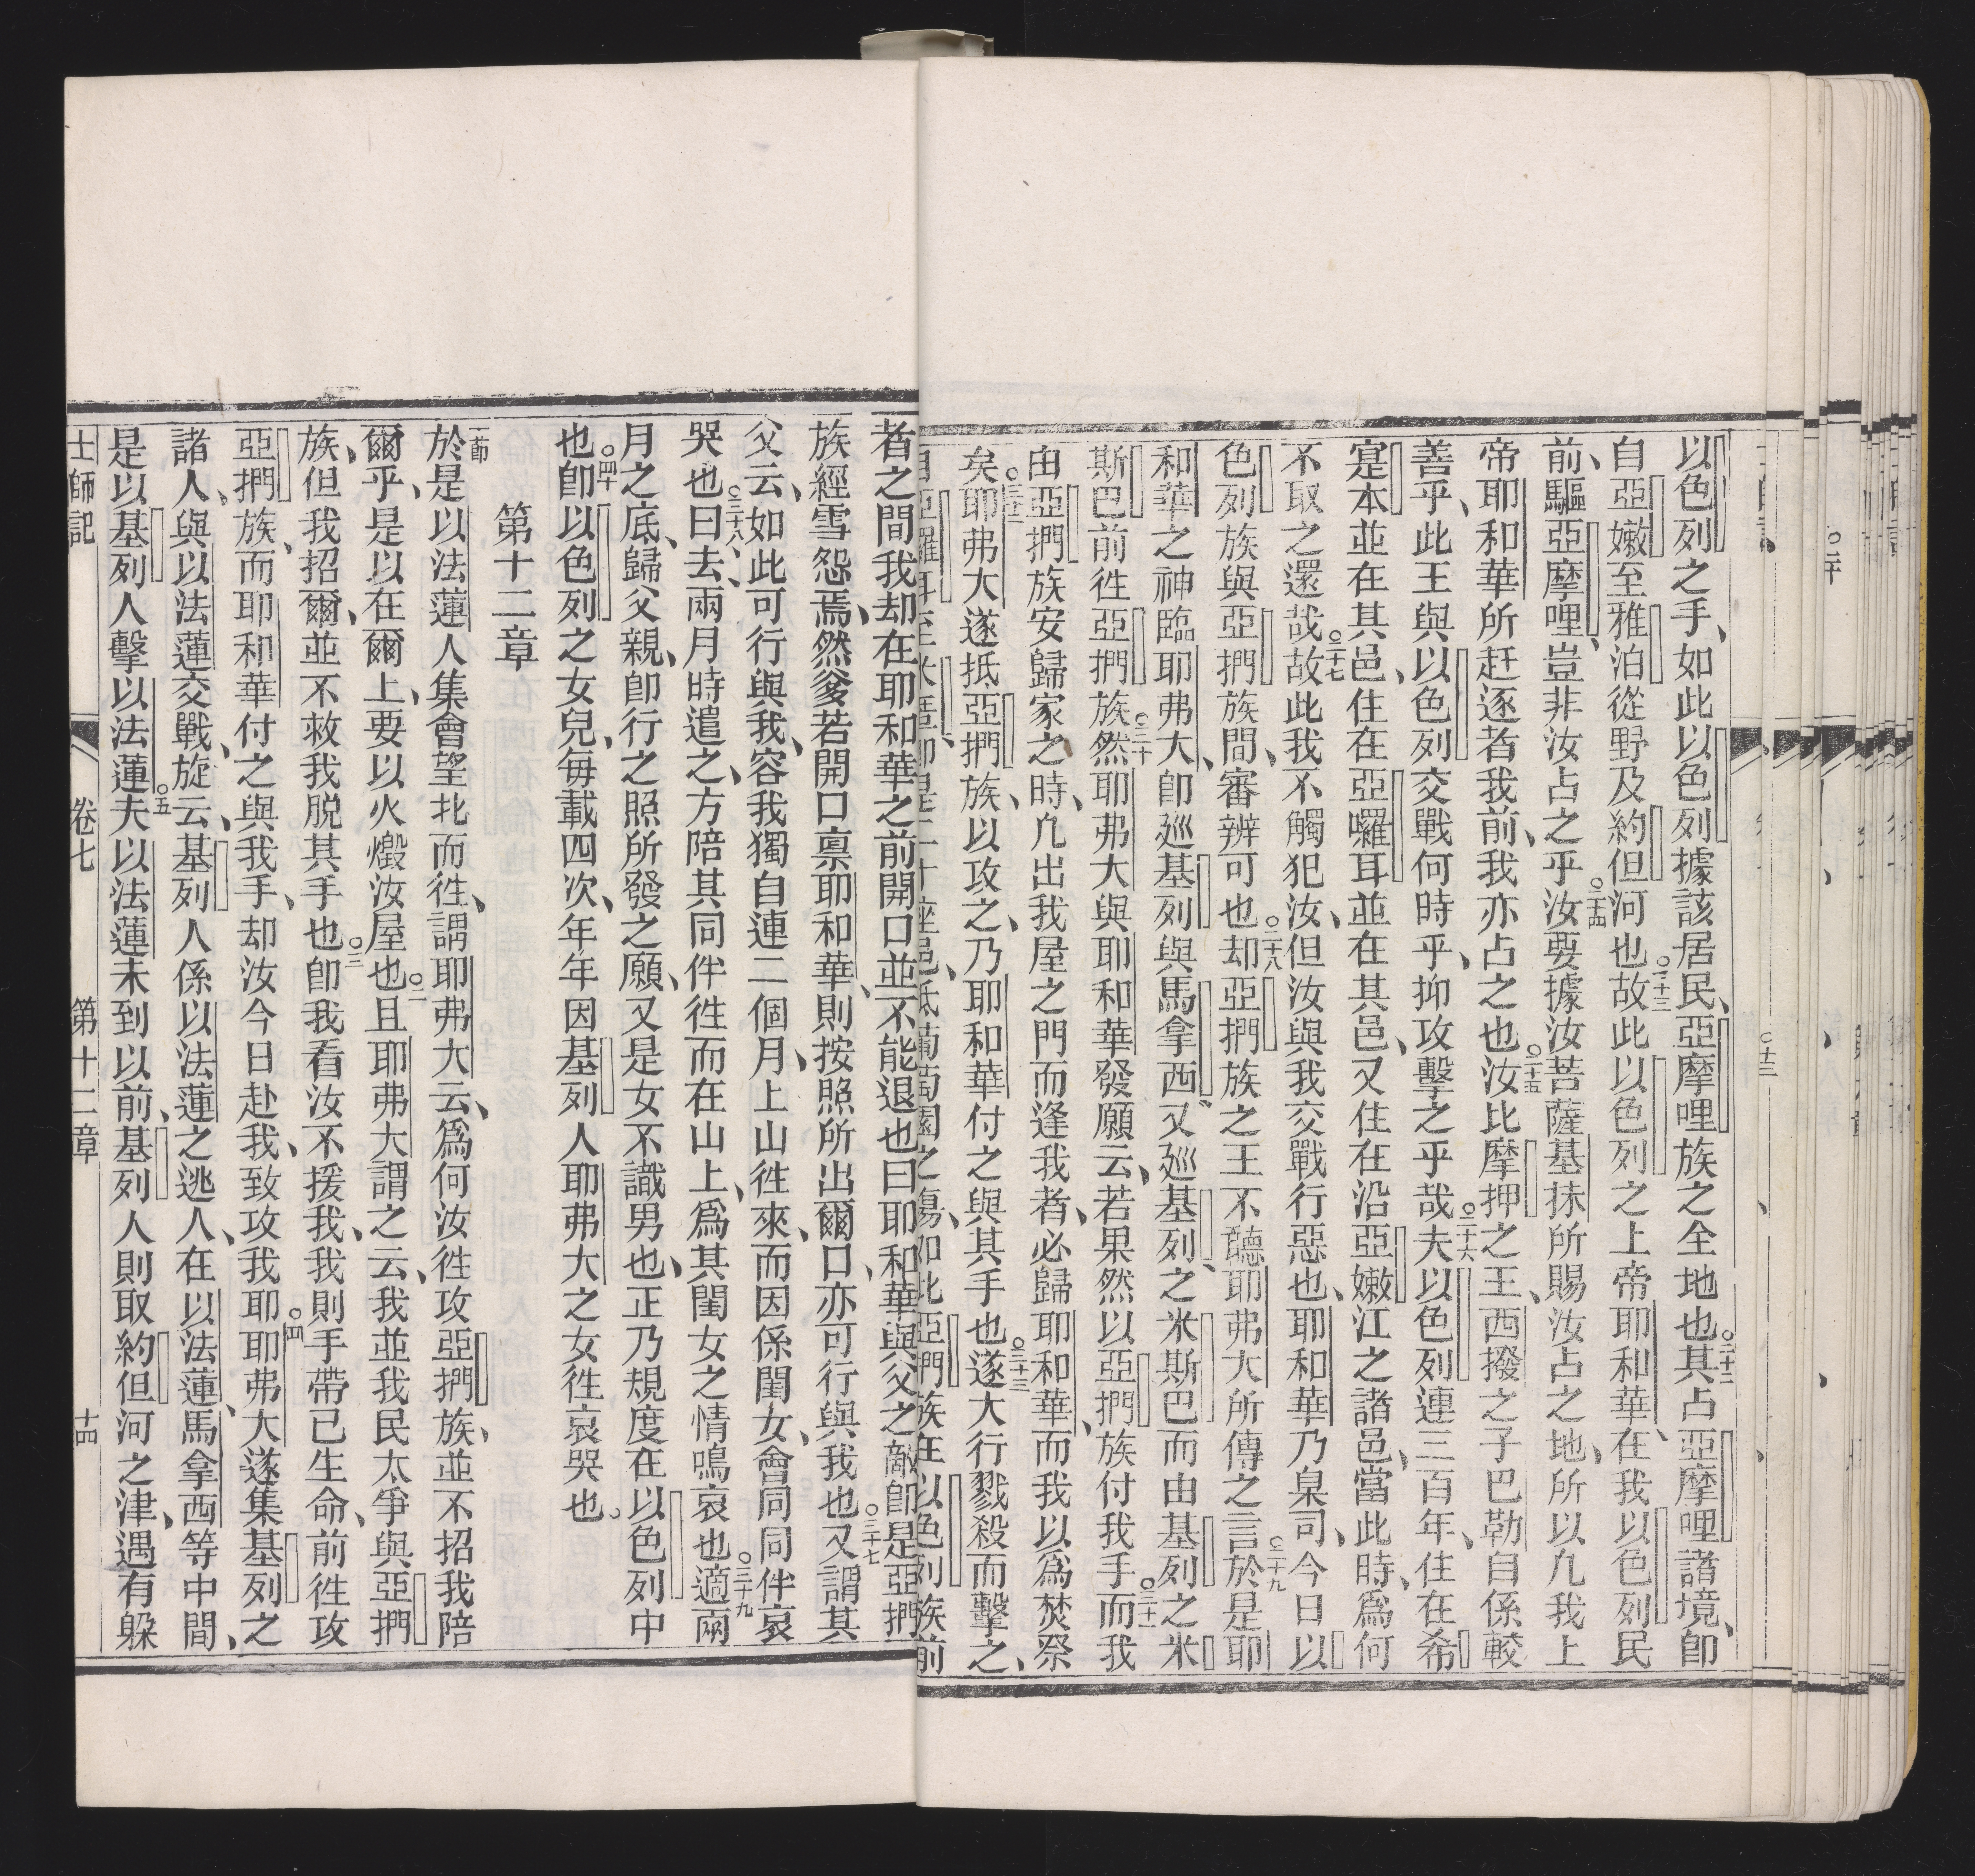 以色列之手、如此以色列據該居民、亞摩哩族之全地也○二十二其占亞摩哩諸境、卽
自亞嫩至雅泊從野及約但河也○二十三故此以色列之上帝耶和華、在我以色列民
前、驅亞摩哩、豈非汝占之乎○二十四汝要據汝菩薩基抹所賜汝占之地、所以凡我上
帝耶和華所赶逐者我前、我亦占之也○二十五汝比摩押之王、西撥之子巴勒自係較
善乎、此王與以色列交戰何時乎、抑攻擊之乎哉○二十六夫以色列連三百年、住在希
寔本並在其邑、住在亞囉耳並在其邑、又住在沿亞嫩江之諸邑、當此時、爲何
不取之還哉○二十七故此我不觸犯汝、但汝與我交戰行惡也、耶和華乃臬司、今日以
色列族與亞捫族間、審辨可也○二十八却亞捫族之王不聽耶弗大所傳之言○二十九於是耶
和華之神臨耶弗大、卽廵基列與馬拿西、又廵基列、之米斯巴而由基列之米
斯巴前徃亞捫族○三十然耶弗大與耶和華發願云、若果然以亞捫族付我手○三十一而我
由亞捫族安歸家之時、凡出我屋之門而逢我者、必歸耶和華、而我以爲焚祭
矣○三十二耶弗大遂抵亞捫族、以攻之、乃耶和華付之與其手也○三十三遂大行戮殺而擊之、
座邑、抵葡萄園之塲、如此亞捫族在以色列族前
者之間我却在耶和華之前開口並不能退也曰耶和華與父之敵卽是亞捫
族經雪怨焉、然爹若開口禀耶和華、則按照所出爾口、亦可行與我也○三十七又謂其
父云、如此可行與我、容我獨自連二個月、上山徃來、而因係閨女、會同同伴哀
哭也○三十八曰去、兩月時遣之、方陪其同伴徃而在山上、爲其閨女之情鳴哀也○三十九適兩
月之底、歸父親、卽行之照所發之願、又是女不識男也、正乃規度在以色列中
也○四十卽以色列之女兒、每載四次、年年因基列人耶弗大之女徃哀哭也。
第十二章
一節於是以法蓮人集會望北而徃、謂耶弗大云、爲何汝徃攻亞捫族、並不招我陪
爾乎、是以在爾上、要以火燬汝屋也○二且耶弗大謂之云、我並我民太爭與亞捫
族、但我招爾、並不救我脱其手也○三卽我看汝不援我、我則手帶已生命、前徃攻
亞捫族、而耶和華付之與我手、却汝今日赴我、致攻我耶○四耶弗大遂集基列之
諸人、與以法蓮交戰、旋云、基列人係以法蓮之逃人、在以法蓮、馬拿西等中間、
是以基列人擊以法蓮○五夫以法蓮未到以前、基列人則取約但河之津、遇有躱
士師記 卷七 第十二章 十四